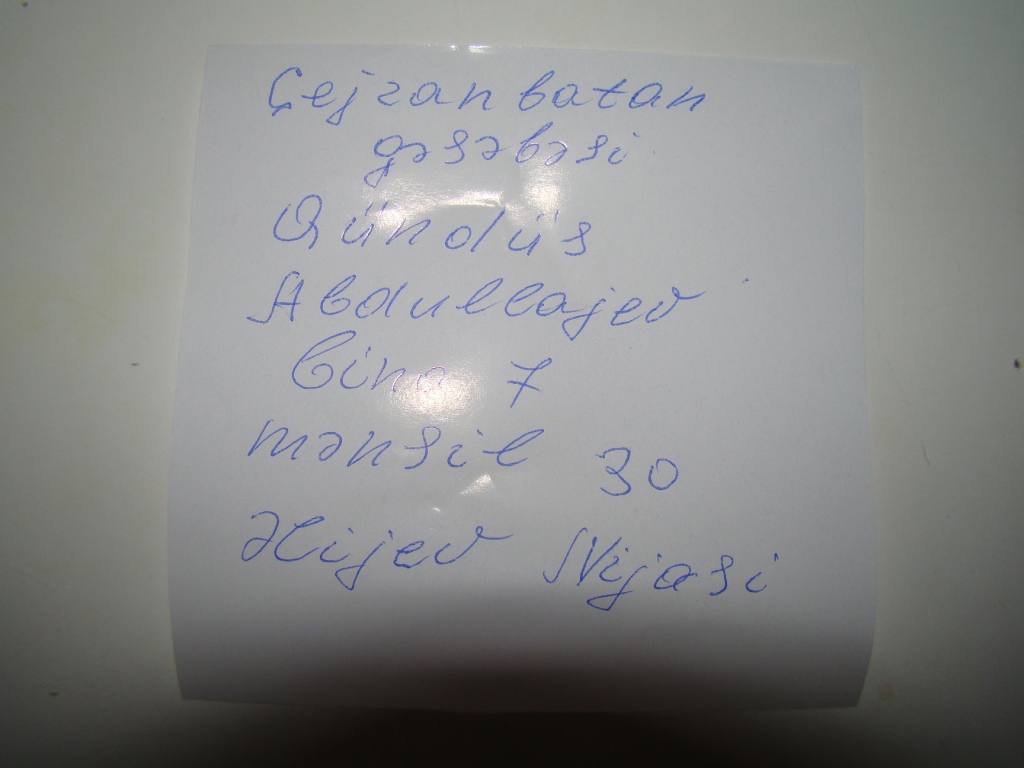 Çejran batan
gəsəbəsi
Qündüs
Abdullajev
bina 7
mənsil 30
Əlijev Nijasi